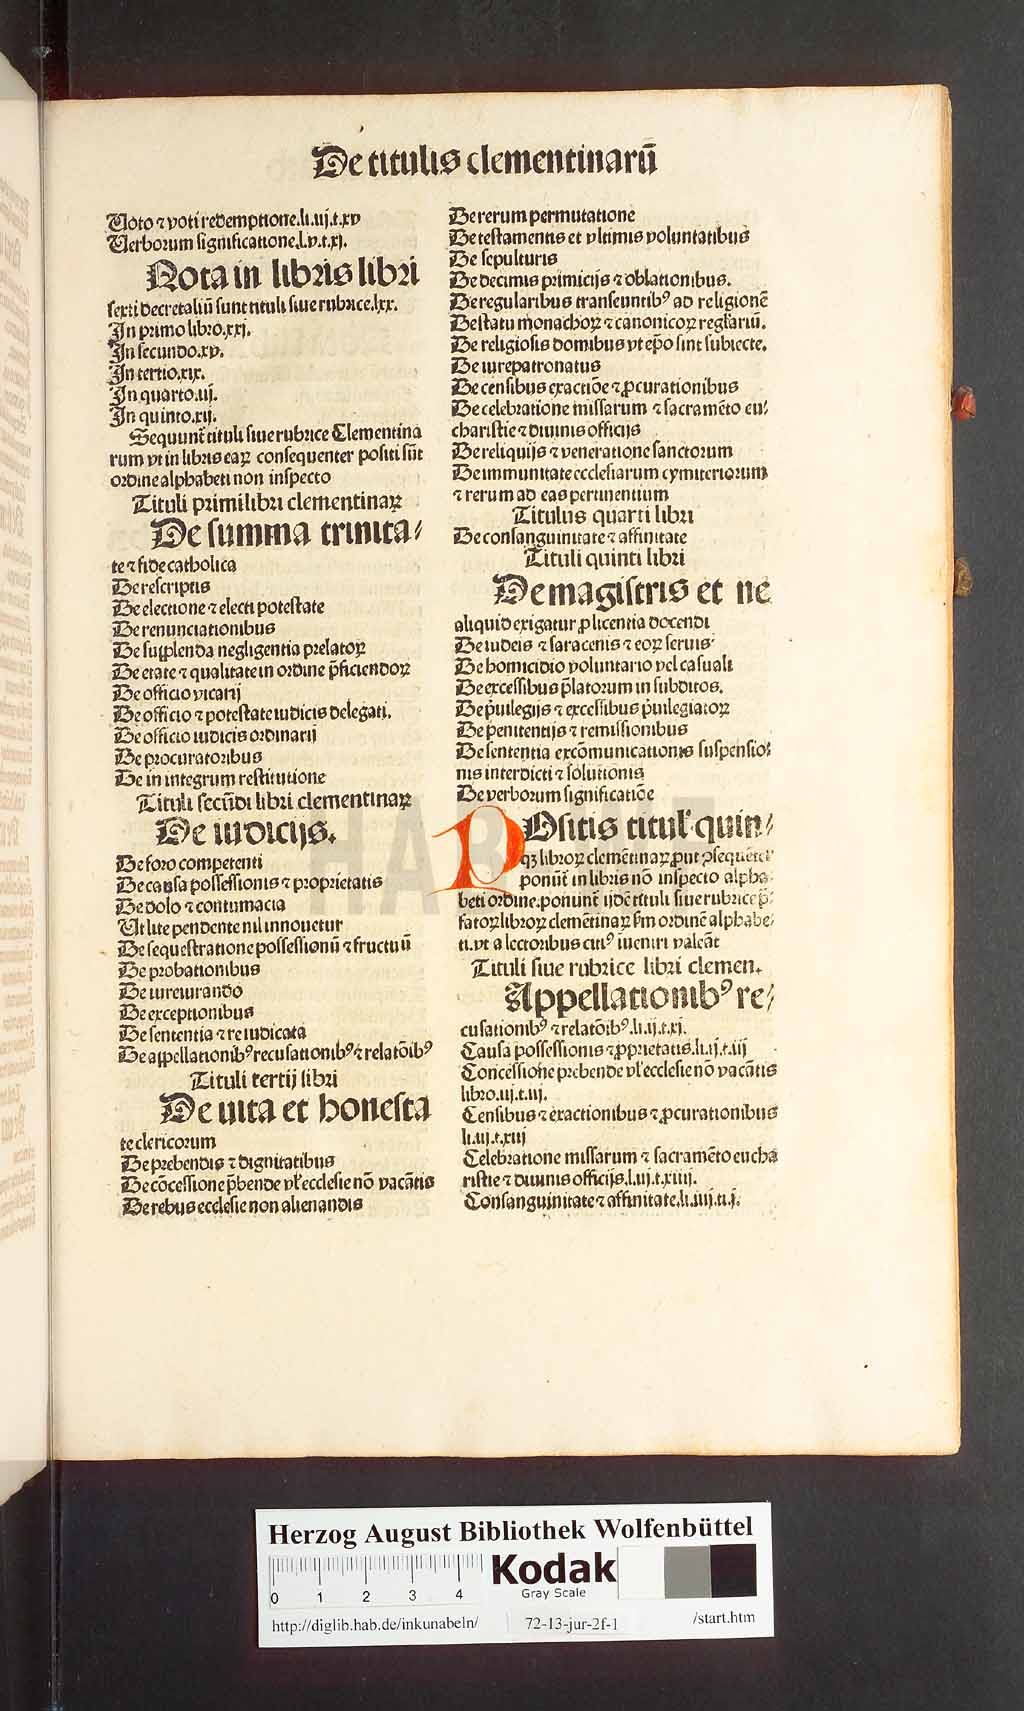 De titulis clementinarū
Uoto ⁊ voti redemptione.li.iij.t.xv
Uerborum significatione.l.v.t.xj.
Nota in libris libri
sexti decretaliū sunt tituli siue rubrice.lxx.
In primo libro.xxj.
In secundo.xv.
In tertio.xix.
In quarto.iij.
In quinto.xij.
Sequunt̄ tituli siue rubrice Clementina
rum vt in libris eaꝝ consequenter positi sūt
ordine alphabeti non inspecto
Tituli primi libri clementinaꝝ
De summa trinita⸗
te ⁊ fide catholica
De rescriptis
De electione ⁊ electi potestate
De renunciationibus
De supplenda negligentia prelatoꝝ
De etate ⁊ qualitate in ordine p̄ficiendoꝝ
De officio vicarij
De officio ⁊ potestate iudicis delegati.
De officio iudicis ordinarij
De procuratoribus
De in integrum restitutione
Tituli secūdi libri clementinaꝝ
De iudicijs.
De foro competenti
De causa possessionis ⁊ proprietatis
De dolo ⁊ contumacia
Ut lite pendente nil innouetur
De sequestratione possessionū ⁊ fructuū
De probationibus
De iureiurando
De exceptionibus
De sententia ⁊ re iudicata
De appellationibꝰ recusationibꝰ ⁊ relatōibꝰ
Tituli tertij libri
De uita et honesta
te clericorum
De prebendis ⁊ dignitatibus
De cōcessione p̄bende vl̓ ecclesie nō vacātis
De rebus ecclesie non alienandis
De rerum permutatione
De testamentis et vltimis voluntatibus
De sepulturis
De decimis primicijs ⁊ oblationibus.
De regularibus transeuntibꝰ ad religionē
De statu monachoꝝ ⁊ canonicoꝝ regl̓ariū.
De religiosis domibus vt ep̄o sint subiecte.
De iurepatronatus
De censibus exactiōe ⁊ ꝓcurationibus
De celebratione missarum ⁊ sacramēto eu⸗
charistie ⁊ diuinis officijs
De reliquijs ⁊ veneratione sanctorum
De immunitate ecclesiarum cymiteriorum
⁊ rerum ad eas pertinentium
Titulus quarti libri
De consanguinitate ⁊ affinitate
Tituli quinti libri
De magistris et ne
aliquid exigatur ꝓ licentia docendi
De iudeis ⁊ saracenis ⁊ eoꝝ seruis
De homicidio voluntario vel casuali
De excessibus p̄latorum in subditos.
De p̓uilegijs ⁊ excessibus p̓uilegiatoꝝ
De penitentijs ⁊ remissionibus
De sententia excōmunicationis suspensio⸗
nis interdicti ⁊ solutionis
De verborum significatiōe
POsitis titul̓ quin⸗
qꝫ libroꝝ clemētinaꝝ ꝓut ꝯsequēter
ponūt̄ in libris nō inspecto alpha⸗
beti ordine.ponunt̄ ijdē tituli siue rubrice p̄⸗
fatoꝝ libroꝝ clemētinaꝝ ẜm ordinē alphabe⸗
ti.vt a lectoribus citiꝰ iueniri valeāt
Tituli siue rubrice libri clemen.
Appellationibꝰ re⸗
cusationibꝰ ⁊ relatōibꝰ.li.ij.t.xj.
Causa possessionis ⁊ ꝓprietatis.li.ij.t.iij
Concessione prebende vl̓ ecclesie nō vacātis
libro.iij.t.iij.
Censibus ⁊ exactionibus ⁊ ꝓcurationibus
li.iij.t.xiij
Celebratione missarum ⁊ sacramēto eucha
ristie ⁊ diuinis officijs.l.iij.t.xiiij.
Consanguinitate ⁊ affinitate.li.iiij.ti.j.
HAB WF
Herzog August Bibliothek Wolfenbüttel
0 1 2 3 4
Kodak
Gray Scale
http://diglib.hab.de/inkunabeln/ 72-13-jur-2f-1 /start.htm